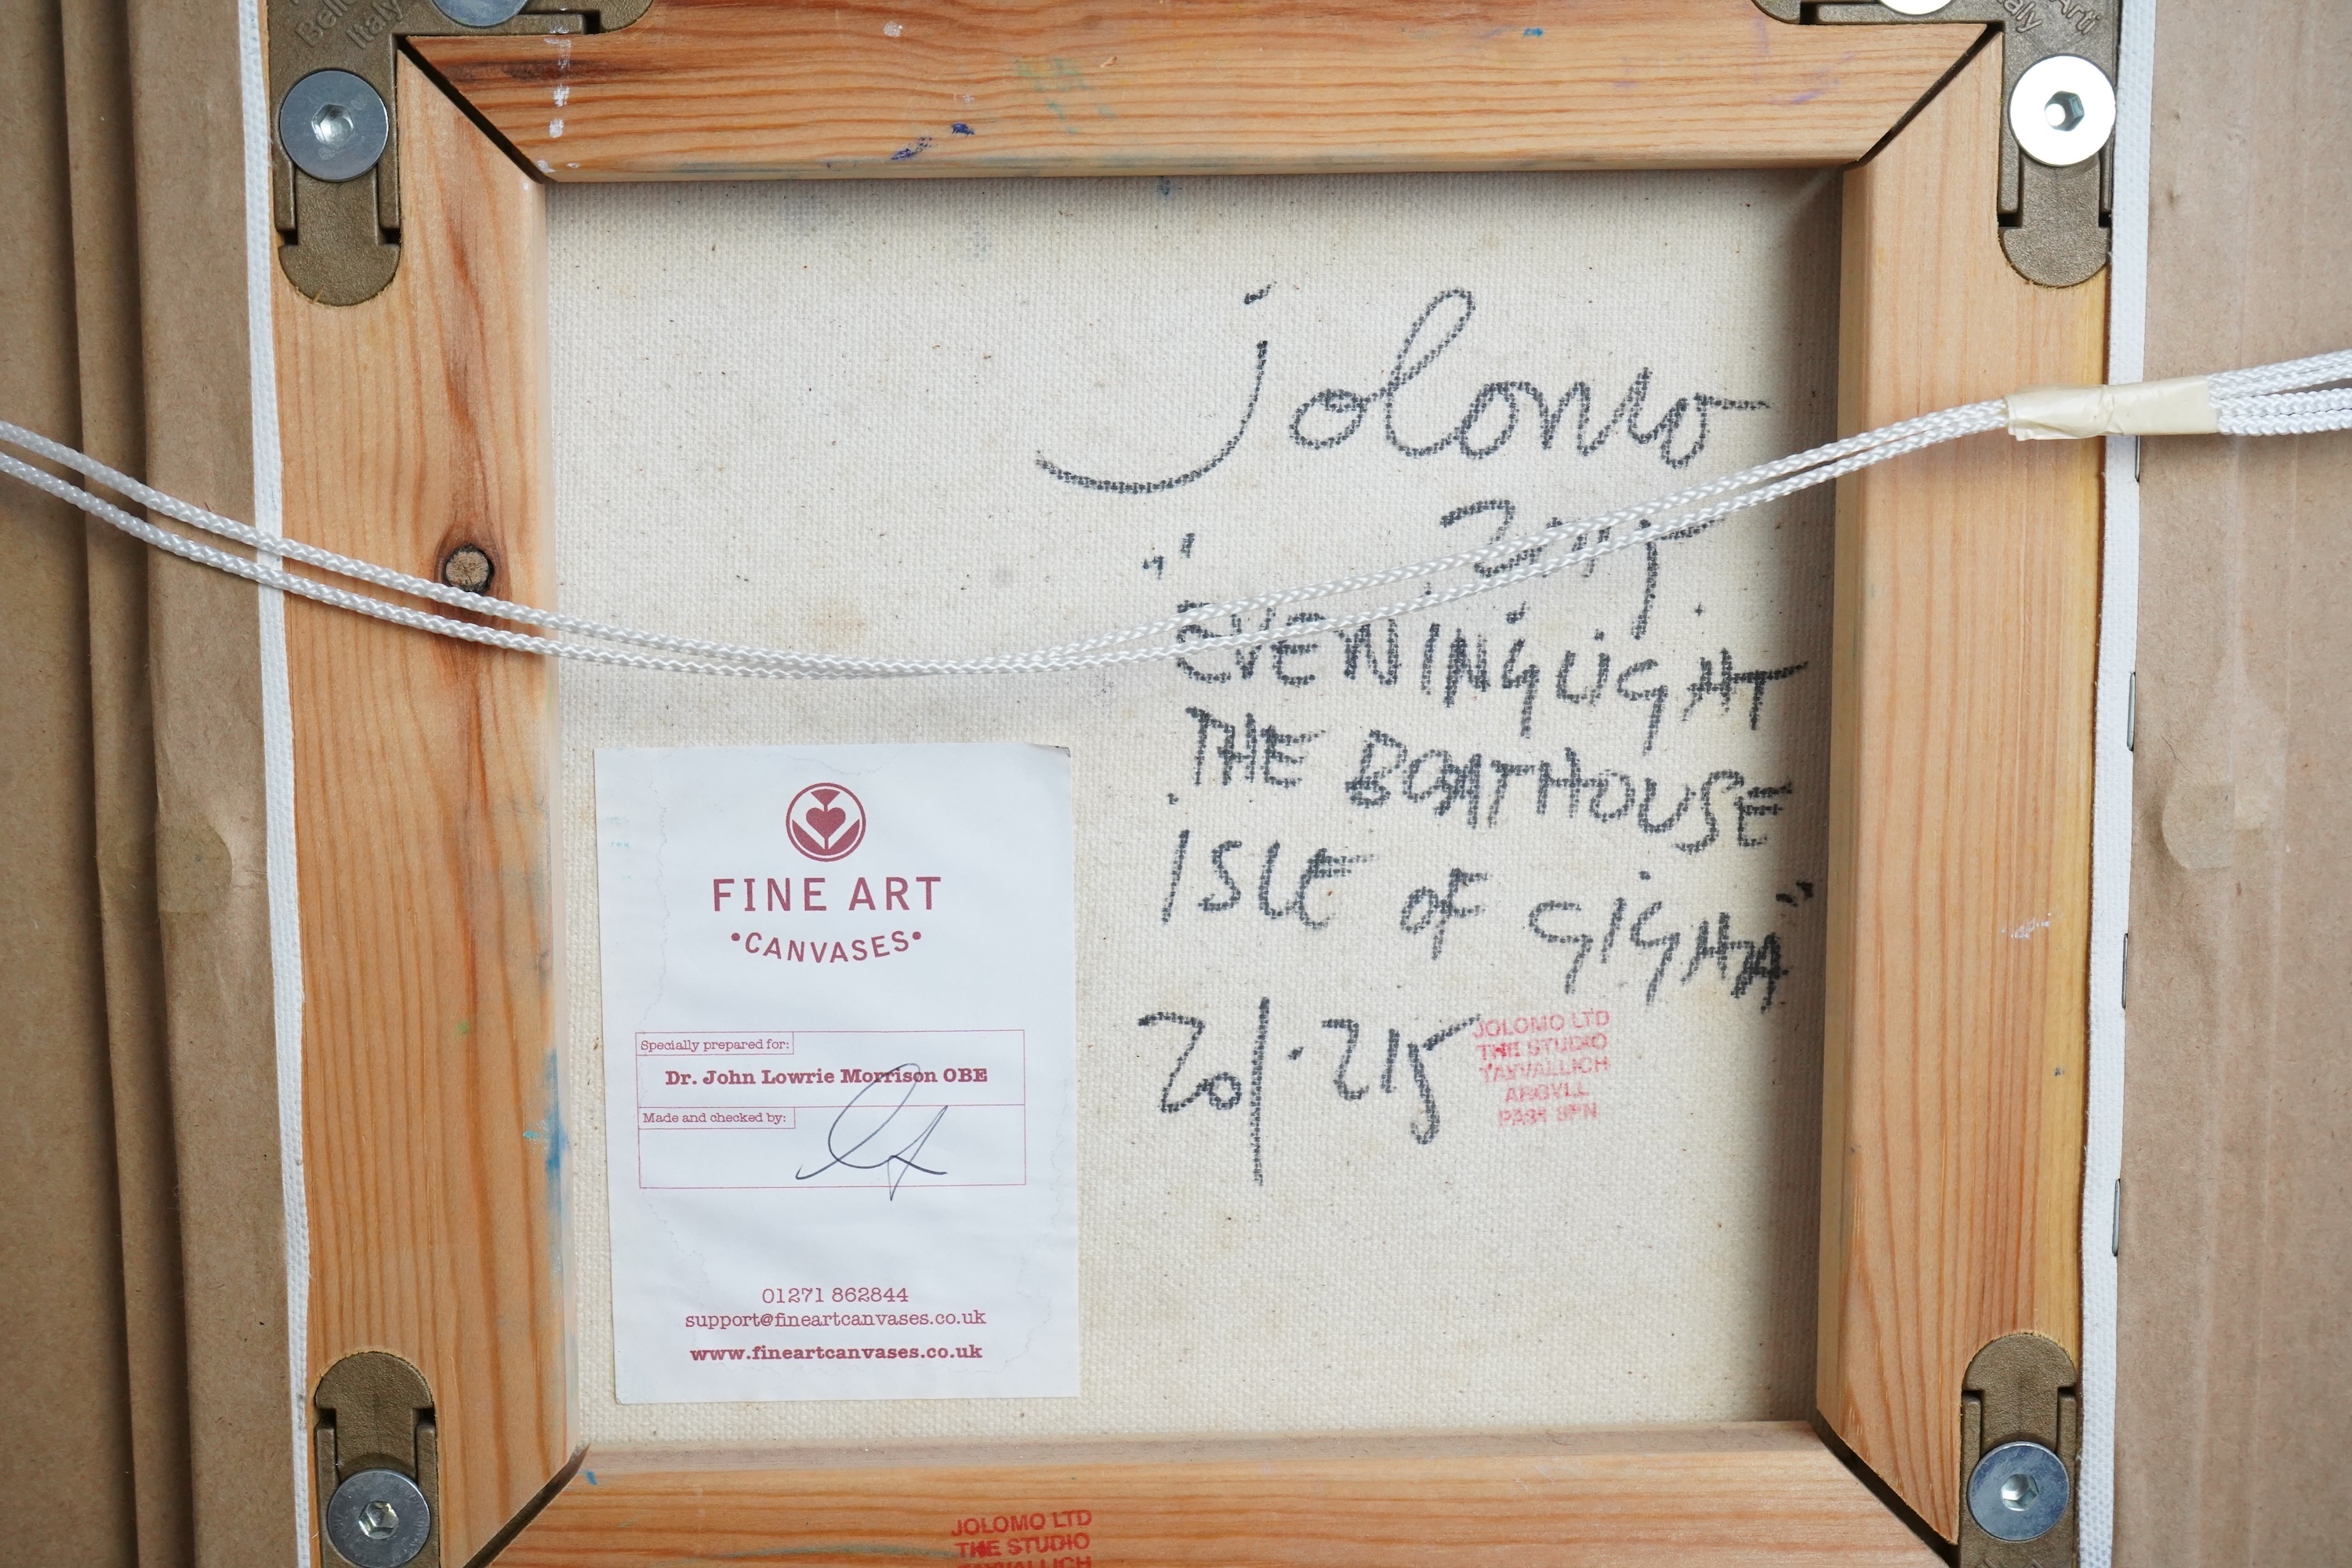 Italy
Arti
Italy
jolomo
"EVENING LIGHT
THE BOATHOUSE
iSLE OF GIGHA"
201·215
JOLOMO LTD
THE STUDIO
TAYVALLICH
ARGYLL
PA31 8PN
FINE ART
•CANVASES•
Specially prepared for:
Dr. John Lowrie Morrison OBE
Made and checked by:
01271 862844
support@fineartcanvases.co.uk
www.fineartcanvases.co.uk
JOLOMO LTD
THE STUDIO
TAYVALLICH